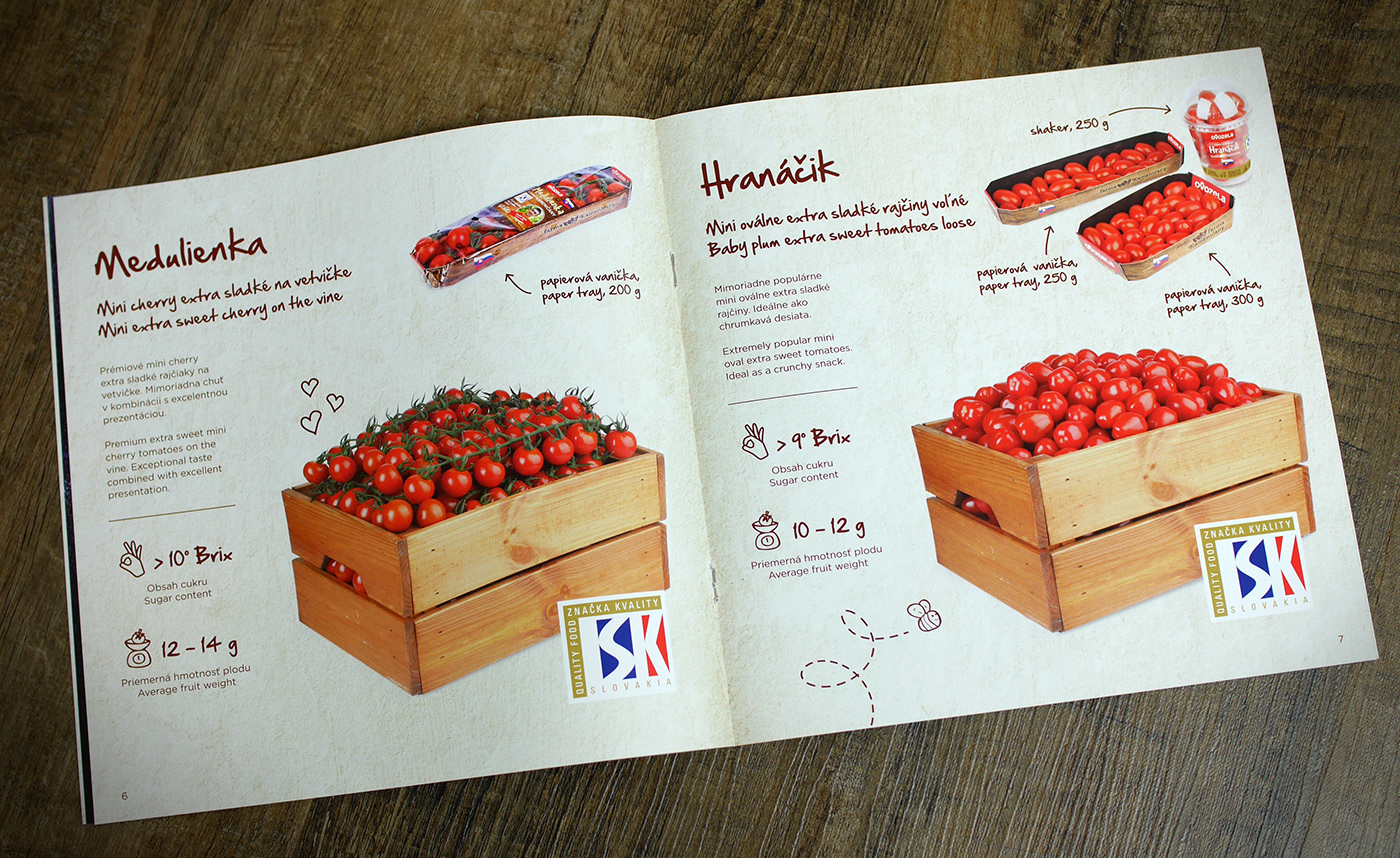 Medulienka
Mini cherry extra sladké na vetvičke
Mini extra sweet cherry on the vine
papierová vanička,
paper tray, 200 g
Prémiové mini cherry
extra sladké rajčiaky na
vetvičke. Mimoriadna chuť
v kombinácii s excelentnou
prezentáciou.
Premium extra sweet mini
cherry tomatoes on the
vine. Exceptional taste
combined with excellent
presentation.
>10° Brix
Obsah cukru
Sugar content
12 – 14 g
Priemerná hmotnosť plodu
Average fruit weight
ZNAČKA KVALITY
QUALITY FOOD
SK
SLOVAKIA
6
Hranáčik
Mini oválne extra sladké rajčiny voľné
Baby plum extra sweet tomatoes loose
shaker, 250 g
OVOZELA
Hranáčik
OVOZELA
papierová vanička,
paper tray, 250 g
papierová vanička,
paper tray, 300 g
Mimoriadne populárne
mini oválne extra sladké
rajčiny. Ideálne ako
chrumkavá desiata.
Extremely popular mini
oval extra sweet tomatoes.
Ideal as a crunchy snack.
>9° Brix
Obsah cukru
Sugar content
10 – 12 g
Priemerná hmotnosť plodu
Average fruit weight
ZNAČKA KVALITY
QUALITY FOOD
SK
SLOVAKIA
7